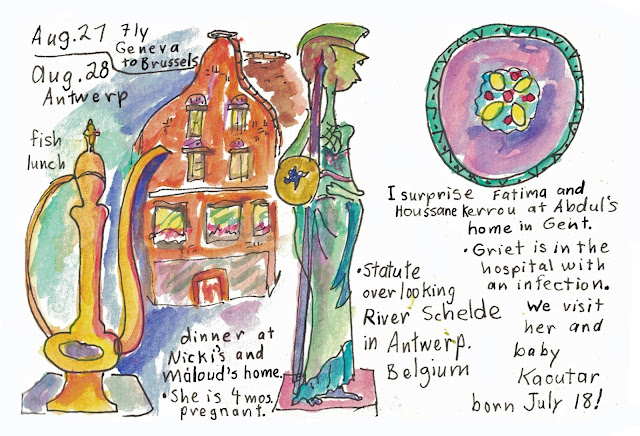 Aug. 27 Fly
Geneva
to Brussels
Aug. 28
Antwerp
fish
lunch
dinner at
Nicki's and
Maloud's home.
• She is 4 mos.
pregnant.
• Statute
overlooking
River Schelde
in Antwerp.
Belgium
I surprise Fatima and
Houssane Kerrou at Abdul's
home in Gent.
• Griet is in the
hospital with
an infection.
We visit
her and
baby
Kaoutar
born July 18!